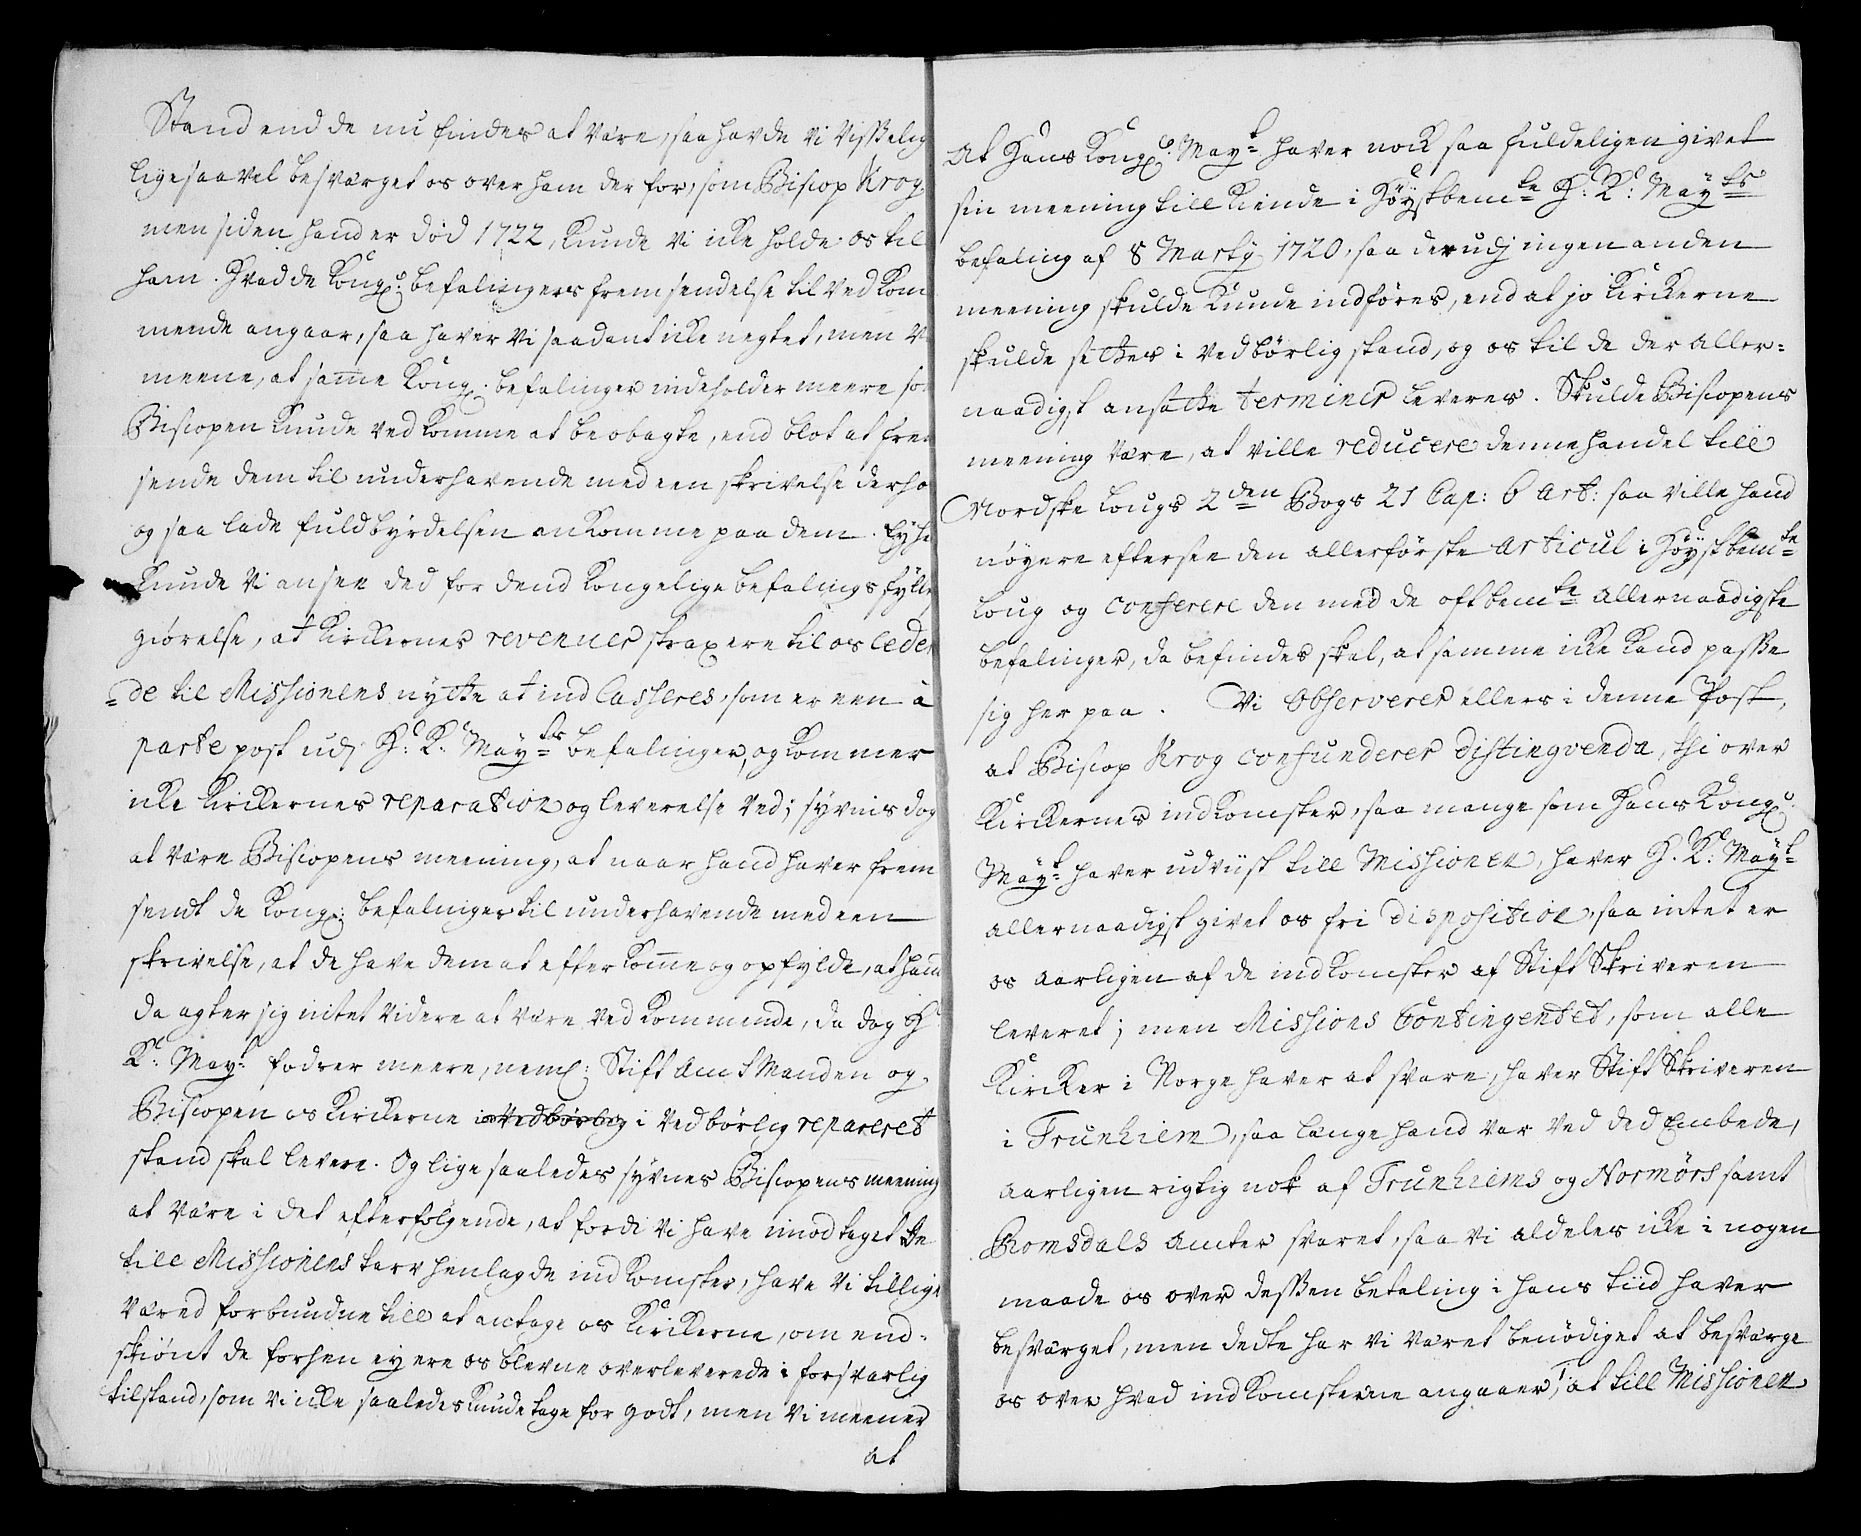 Stand end de nu findes at være, saa hafde vi visselig
ligesaavel besværget os over ham der for, som Biscop Krog,
men siden hand er død 1722, kunde vi icke holde os til
ham. Hvad de Kongl: befalingers fremsendelse til vedkom
mende angaar, saa haver vi saadant icke negtet, men
meene, at samme Kongl. befalinger indeholder meere so
Biscopen kunde vedkomme at beobagte, end blot at frem
sende dem til underhavende med een skrivelse derho
og saa lade fuldbyrdelsen ankomme paa dem. Ey he
kunde vi ansee ded for dend kongelige befalings fylde
giørelse, at kirckernes revenuer strax ere til os leder
de til Missionens nytte at ind Casseres, som er een a
parte post udj H: K: Mayts befalinger, og kommer
icke kirckernes reparation og leverelse ved; syvnis dog
at være Biscopens meening, at naar hand haver frem
sendt de Kongl: befalinger til underhavende med een
skrivelse, at de have dem at efterkomme og opfylde, at hand
da agter sig intet videre at være vedkommende, da dog H
K: Mayt: fodrer meere, neml: Stift Amtmanden og
Biscopen os kirckerne i vedbørlig i vedbørlig reparert
stand skal levere. Og lige saaledes syvnes Biscopens meening
at være i det efterfølgende, at fordi vi have imodtaget de
till Missionens tarv henlagde indkomster, have vi tillige
været forbundne till at antage os Kirckerne, om end-
skiønt de forhen ey ere os blevne overleverede i forsvarlig
tilstand, som vi icke saaledes kunde tage for godt, men vi meener
at
At Hans Kongl. Mayt haver nock saa fuldeligen givet
sin meening till kiende i Høystbemte H: K: Mayts
befaling af 8 Marty 1720, saa derudj ingen anden
meening skulde kunde indføres, end at jo kirckerne
skulde settes i vedbørlig stand, og os til de der aller-
naadigst ansatte terminer leveres. Skulde Biscopens
meening være, at ville reducere denne handel till
Nordske Lougs 2den Bogs 21 Cap: 6 Art: saa ville hand
nøyere eftersee den allerførste Articul i Høystbemte
Loug og conferere den med de oftbemte allernaadigste
befalinger, da befindes skal, at samme icke kand passe
sig her paa. Vi observerer ellers i denne Post,
at Biscop Krog confunderer distingvenda, thi over
Kirckernes indkomster, saa mange som Hans Kongl.
Mayt haver udviist till Missionen, haver H. K: Mayt
allernaadigst givet os fri disposition, saa intet er
os aarligen af de indkomster af Stift Skriveren
leveret; men Missions Contingentet, som alle
Kircker i Norge haver at svare, haver Stift Skriveren
i Trunhiem, saa længe hand var ved ded Embede,
aarligen rigtig nok af Trunhiems og Normørs samt
Romsdals Amter svaret, saa vi aldeles icke i nogen
maade os over dessen betaling i hans tiid haver
besværget, men dette har vi været benødiget at besværge
os over hvad indkomsterne angaaer, at till Missionen